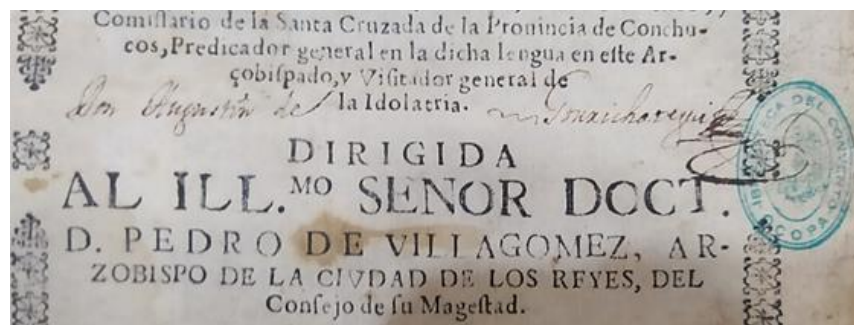 Comiſſario de la Santa Cruzada de la Prouincia de Conchu-
cos, Predicador general en la dicha lengua en eſte Ar-
çobiſpado, y Viſitador general de
la Idolatria.
Don Augustin de
DIRIGIDA
AL ILL.MO SEÑOR DOCT.
D. PEDRO DE VILLAGOMEZ, AR-
ZOBISPO DE LA CIVDAD DE LOS REYES, DEL
Conſejo de ſu Mageſtad.
BIBLIOTECA DEL CONVENTO
OCOPA